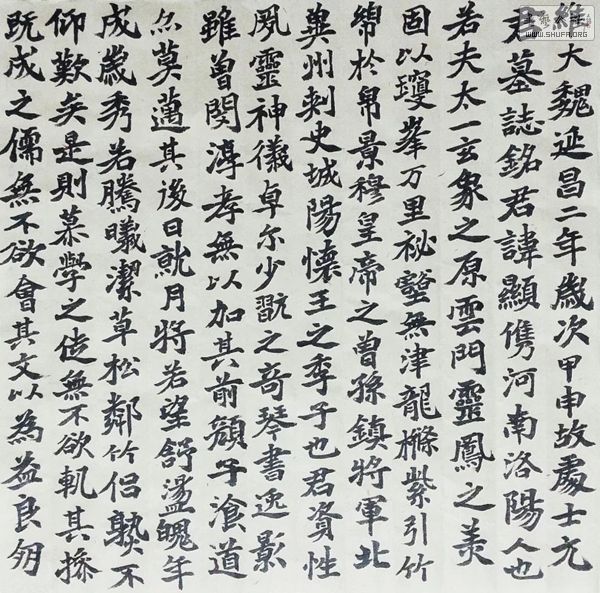 維大魏延昌二年歲次甲申故處士元
君墓誌銘君諱顯儁河南洛陽人也
若夫太一玄象之原雲門靈鳳之美
固以瓊峯万里祕壑無津龍縧紫引竹
於帛景穆皇帝之曾孫鎮將軍北
冀州刺史城陽懷王之季子也君資性
夙靈神儀卓尔少翫之奇琴書逸影
雖曾閔淳孝無以加其前顏子湌道
亦莫邁其後日就月將若望舒盪魄年
成歲秀若騰曦潔草松鄰竹侶孰不
仰歎矣是則慕學之徒無不欲軌其操
既成之儒無不欲會其文以為益良朋
WWW.SHUFA.ORG